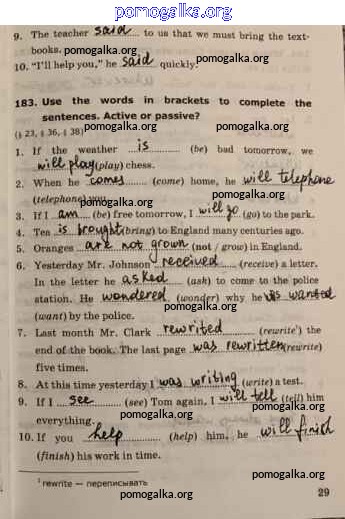 pomogalka.org
9. The teacher said to us that we must bring the text-
books. pomogalka.org
10. "I'll help you," he said quickly.
pomogalka.org
183. Use the words in brackets to complete the
sentences. Active or passive?
(§ 23, § 36, § 38) pomogalka.org pomogalka.org
1. If the weather is (be) bad tomorrow, we
will play (play) chess. pomogalka.org
2. When he comes (come) home, he will telephone
(telephone) you. pomogalka.org
3. If I am (be) free tomorrow, I will go (go) to the park.
4. Tea is brought (bring) to England many centuries ago.
5. Oranges are not grown (not / grow) in England.
6. Yesterday Mr. Johnson received (receive) a letter.
In the letter he asked (ask) to come to the police
station. He wondered (wonder) why he is wanted
(want) by the police. pomogalka.org
7. Last month Mr. Clark rewrited (rewrite¹) the
end of the book. The last page was rewritten (rewrite)
five times. pomogalka.org
8. At this time yesterday I was writing (write) a test.
9. If I see (see) Tom again, I will tell (tell) him
everything. pomogalka.org
pomogalka.org
10. If you help (help) him, he will finish
(finish) his work in time. pomogalka.org
¹ rewrite — переписывать
pomogalka.org
29
pomogalka.org